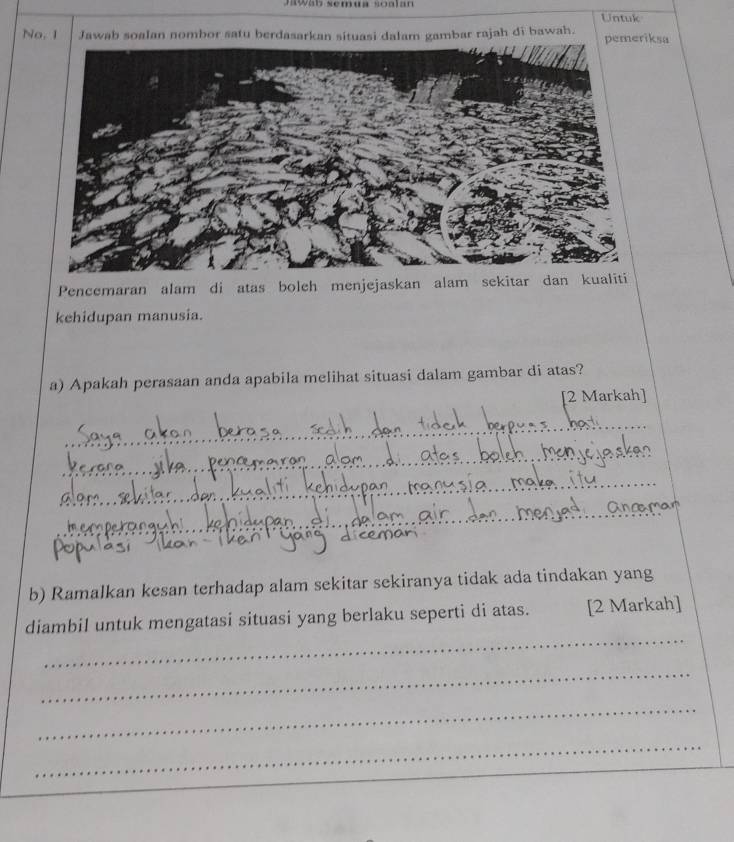 Jawab semua soalan
Untuk
pemeriksa
No. 1 Jawab soalan nombor satu berdasarkan situasi dalam gambar rajah di bawah.
Pencemaran alam di atas boleh menjejaskan alam sekitar dan kualiti
kehidupan manusia.
a) Apakah perasaan anda apabila melihat situasi dalam gambar di atas?
[2 Markah]
Saya akan berasa sedih dan tidak berpuas hati
kerana jika pencemaran alam di atas boleh menjejaskan
alam sekitar dan kualiti kehidupan manusia maka itu
memperanguhi kehidupan di dalam air dan menjadi ancaman
populasi ikan-ikan yang dicemari
b) Ramalkan kesan terhadap alam sekitar sekiranya tidak ada tindakan yang
diambil untuk mengatasi situasi yang berlaku seperti di atas. [2 Markah]